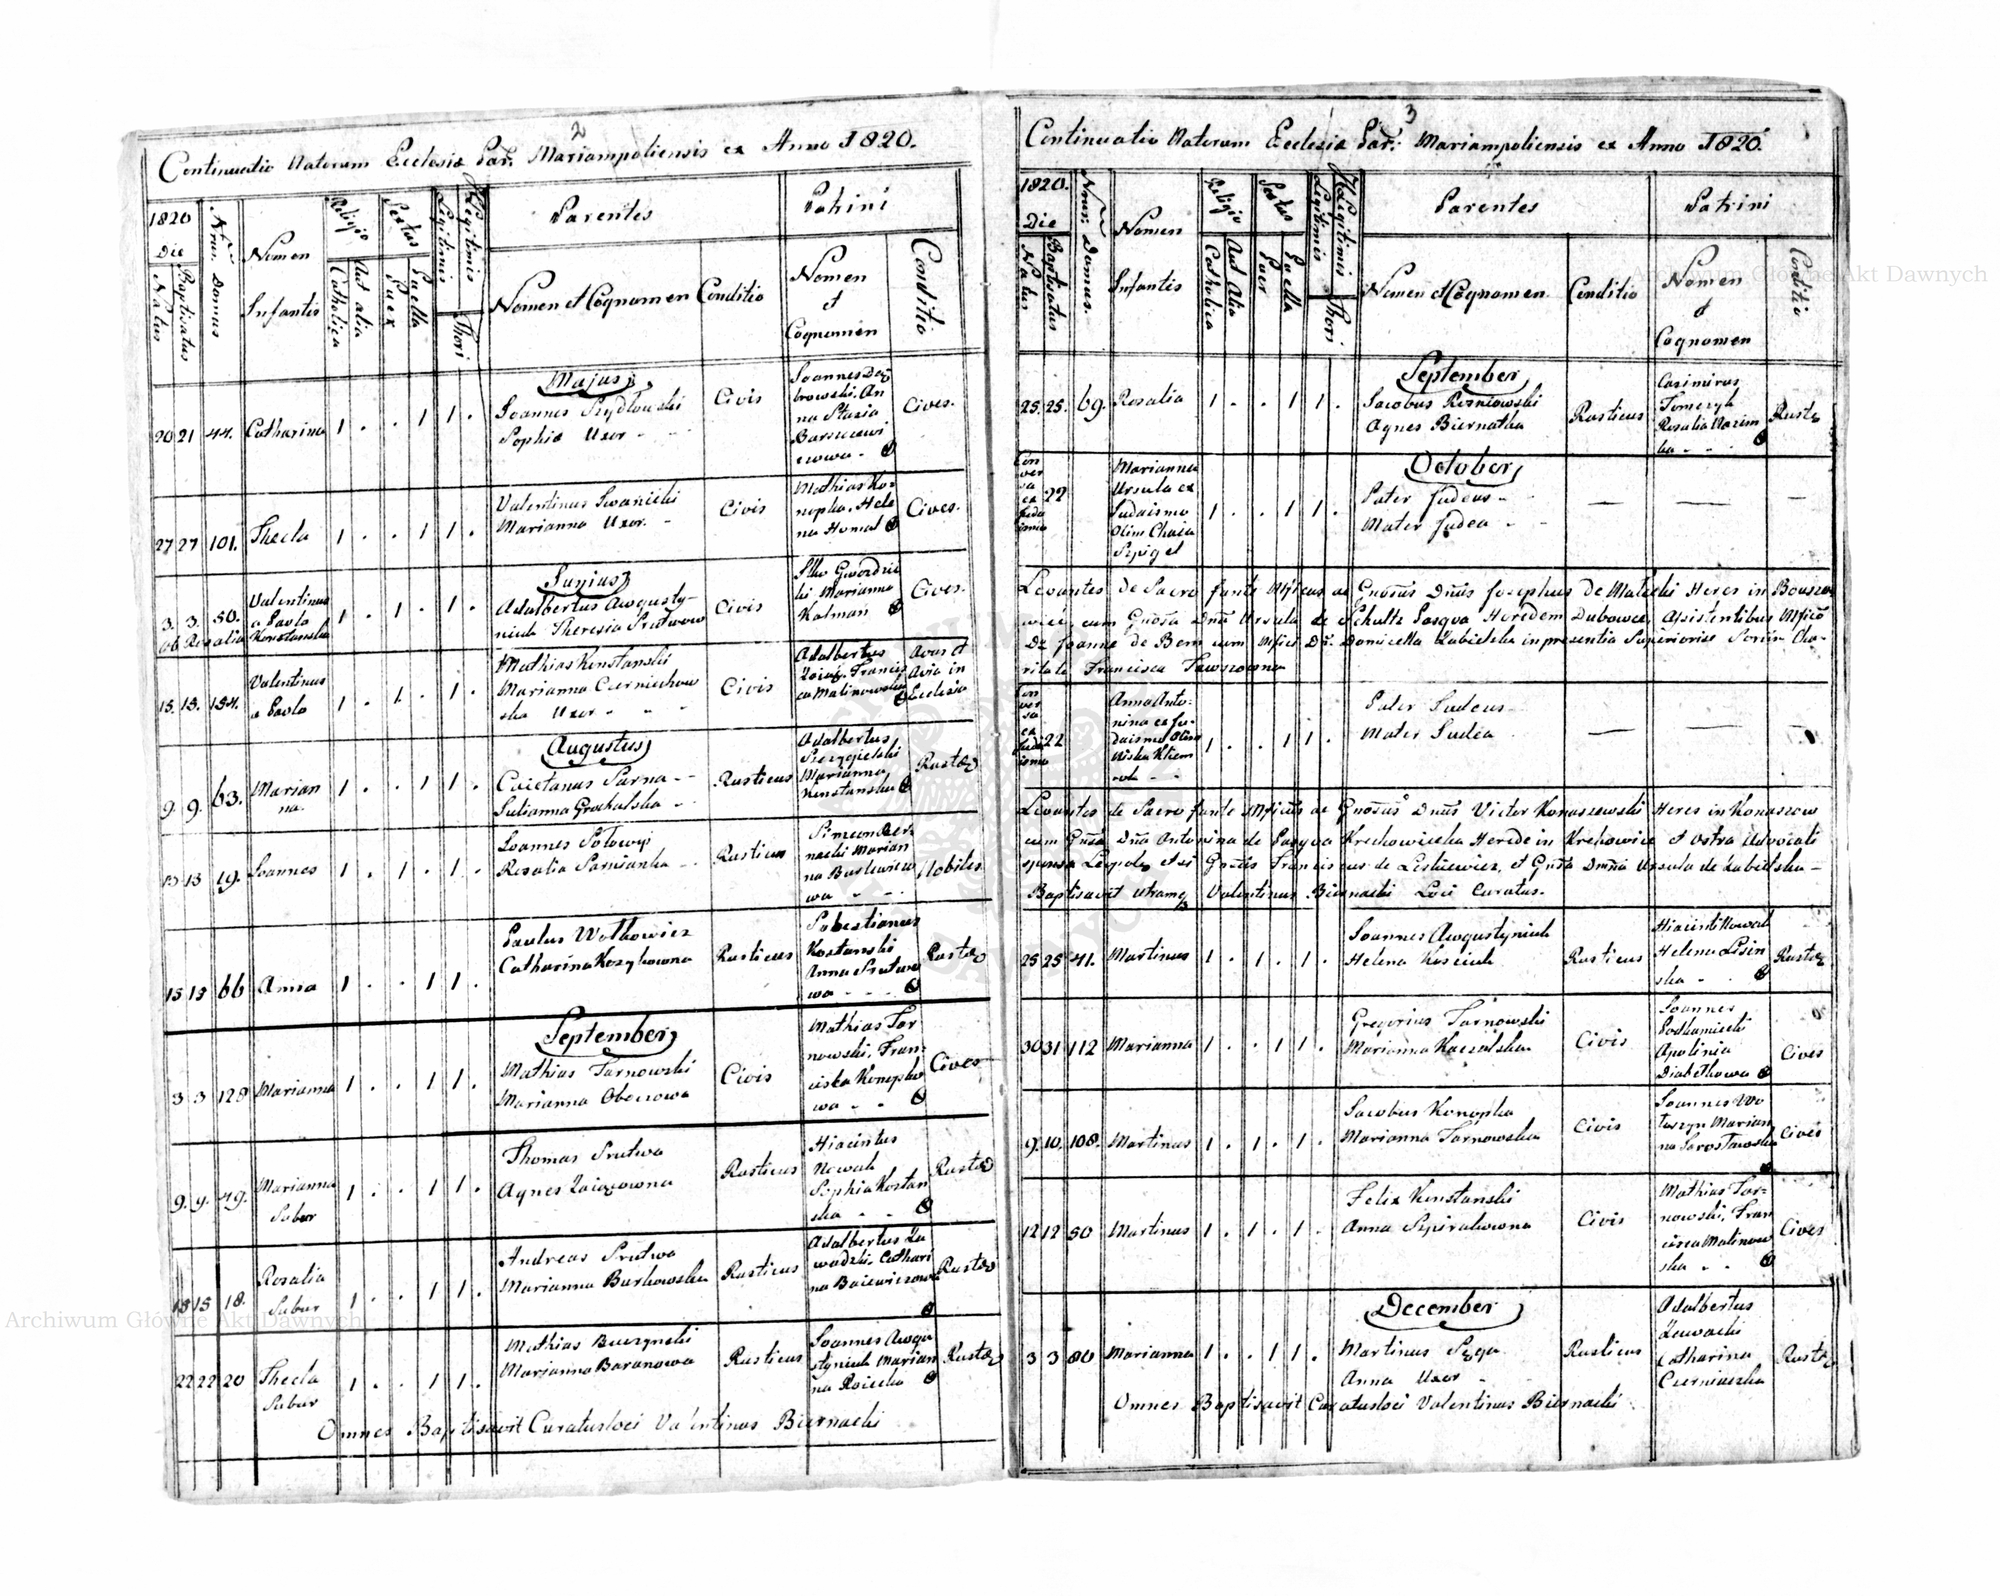 2
Continuatio Natorum Ecclesiæ Par: Mariampoliensis ex Anno 1820.
1820
Die
Natus
Baptisatus
Num. Domus
Nomen
Infantis
Religio
Catholica
Aut alia
Sexus
Puer
Puella
Legitimis
Illegitimis
Thori
Parentes
Nomen et Cognomen
Conditio
Patrini
Nomen
et
Cognomen
Conditio
Majus
20 21 44. Catharina 1 . . 1 1 .
Joannes Szydłowski
Sophia Uxor
Civis
Joannes Dą
browski, An
na Stasia
Cives.
27 27 101. Thecla 1 . . 1 1 .
Valentinus Iwanicki
Marianna Uxor.
Civis
Mathias Ko-
nopka, Hele
na
Cives.
Junius
3. 3. 50. Valentinus
a Paolo 1 . 1 . 1 .
ob Rosalia Konstanska
Adalbertus Awgusty-
niuk Theresia
Civis
Marianna
Kalman
Cives.
13. 13. 134. Valentinus
a Paolo 1 . 1. . 1 .
Mathias Kenstanski
Marianna Czerniechow
ska Uxor
Civis
Adalbertus
Francis
ca Malinowska
Avus et
Avia in
Ecclesia
Augustus
9. 9. 63. Marian
na. 1 . . 1 1 .
Caietanus Sarna
Julianna Grochalska
Rusticus
Adalbertus
Marianna
Kenstanska
Joannes Sołowy
Rosalia
Rusticus
13 13 19. Joannes 1 . 1 . 1 .
Marian
na
wa
Nobiles
Paulus Wołkowicz
Catharina Kozykowna
Rusticus
15 15 66 Anna 1 . . 1 1 .
Sebestianus
Kostanski
Anna
wa
September
3 3 128 Marianna 1 . . 1 1 .
Mathias Tarnowski
Marianna
Civis
Mathias Tar
nowski, Fran-
ciska Konopko
wa
Cives
9. 9. 49. Marianna
Subur 1 . . 1 1 .
Thomas
Agnes
Rusticus
Hiacintus
Nowak
Sophia Kostan
ska
15 15 18. Rosalia
Subur 1 . . 1 1 .
Andreas
Marianna Burkowska
Rusticus
Adalbertus Za
wadzki, Cathari
na
22 22 20 Thecla
Subur 1 . . 1 1 .
Mathias Buczynski
Marianna Baranowa
Rusticus
Joannes Awgu
styniuk Marian
na
Omnes Baptisavit Curatus loci Valentinus Biernacki
3
Continuatio Natorum Ecclesiæ Par: Mariampoliensis ex Anno 1820.
1820.
Die
Natus
Baptisatus
Num. Domus.
Nomen
Infantis
Religio
Catholica
Aut Alia
Sexus
Puer
Puella
Legitimis
Illegitimis
Thori
Parentes
Nomen et Cognomen
Conditio
Patrini
Nomen
et
Cognomen
Conditio
September
25. 25. 69. Rosalia 1 . . 1 1 .
Jacobus Rozniowski
Agnes Biernatka
Rusticus
Casimirus
Tomczyk
Rosalia
October
Con
ver
sa
ex
Juda
ismo
22
Marianna
Ursula ex
Judaismo
Olim Chaia
Szpigel
1 . . 1 1 .
Pater Judeus
Mater Judea
Levantes de Sacro fonte Mficus ac Gnosus Dnus Josephus de Malicki Heres in
cum Gnosa Dna Ursula de Schultz Pasqva Heredem Dubowce, Assistentibus Mfico
Dno Joanne de Bem cum Mfica Dna Domicella Zabielska in presentia Superioris Soror. Cha-
ritatis Francisca
Con
ver
sa
ex
Juda
ismo
22
Anna Anto-
nina ex Ju-
daismo Olim
1 . . 1 1 .
Pater Judeus
Mater Judea
Levantes de Sacro fonte Mficus ac Gnosus Dnus Victor Konaszewski Heres in Konaszow
cum Gnosa Dna Antonina de Pasqva Krechowiecka Herede in Krechowice et Ostra Advocati
sponsa Leopol. et Franciscus de Leskiewicz, et Gnosa Dna Ursula de Zabielska
Baptisavit utramq Valentinus Biernacki Loci Curatus.
25 25 41. Martinus 1 . 1 . 1 .
Joannes Awgustyniuk
Helena Kosciuk
Rusticus
Hiacinti Nowak
Helena Lisin
ska
30 31 112 Marianna 1 . . 1 1 .
Gregorius Tarnowski
Marianna
Civis
Joannes
Apolinia
Diabełkowa
Cives
9. 10. 108. Martinus 1 . 1 . 1 .
Jacobus Konopka
Marianna Tarnowska
Civis
Joannes Wo
łoszyn Marian
na
Cives
12 12 50 Martinus 1 . 1 . 1 .
Felix Kenstanski
Anna Szpirałowna
Civis
Mathias Tar-
nowski, Fran
cisca Malinow
ska
Cives
December
3 3 80 Marianna 1 . . 1 1 .
Martinus
Anna Uxor
Rusticus
Adalbertus
Catharina
Omnes Baptisavit Curatus loci Valentinus Biernacki
Archiwum Główne Akt Dawnych
Archiwum Główne Akt Dawnych